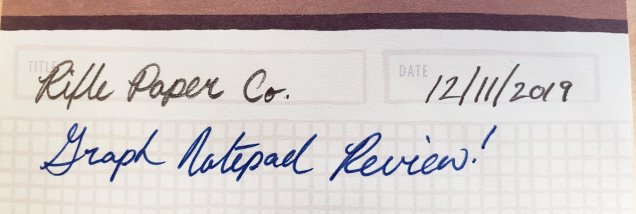 TITLE Rifle Paper Co. DATE 12/11/2019
Graph Notepad Review!